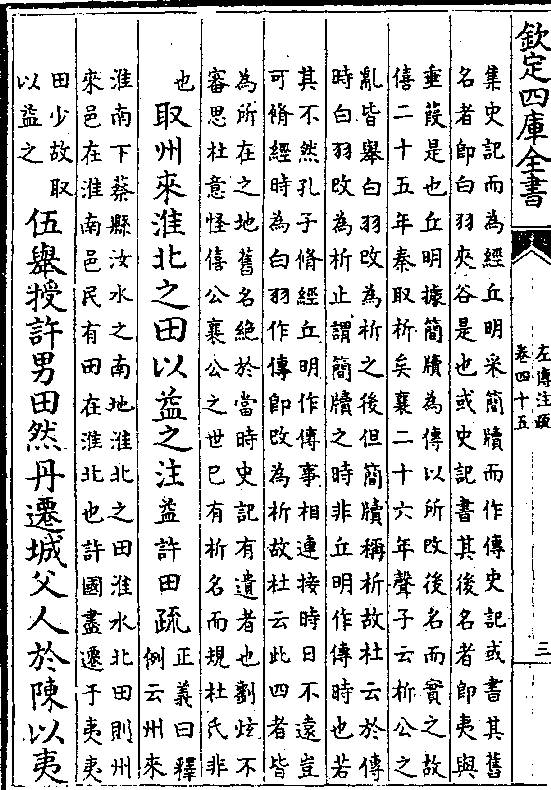 欽定四庫全書
左傳注疏
卷四十五
三
集史記而為經丘明采簡牘而作傳史記或書其舊
名者即白羽夾谷是也或史記書其後名者即夷與
垂葭是也丘明據簡牘為傳以所改後名而實之故
僖二十五年秦取析矣襄二十六年聲子云析公之
亂皆舉白羽改為析之後但簡牘稱析故杜云於傳
時白羽改為析止謂簡牘之時非丘明作傳時也若
其不然孔子脩經丘明作傳事相連接時日不遠豈
可脩經時為白羽作傳即改為析故杜云此四者皆
為所在之地舊名絶於當時史記有遺者也劉炫不
審思杜意怪僖公襄公之世已有析名而規杜氏非
也
取州來淮北之田以益之注益許田疏
正義曰釋
例云州來
淮南下蔡縣汝水之南地淮北之田淮水北田則州
來邑在淮南邑民有田在淮北也許國盡遷于夷夷
田少故取
以益之
伍舉授許男田然丹遷城父人於陳以夷